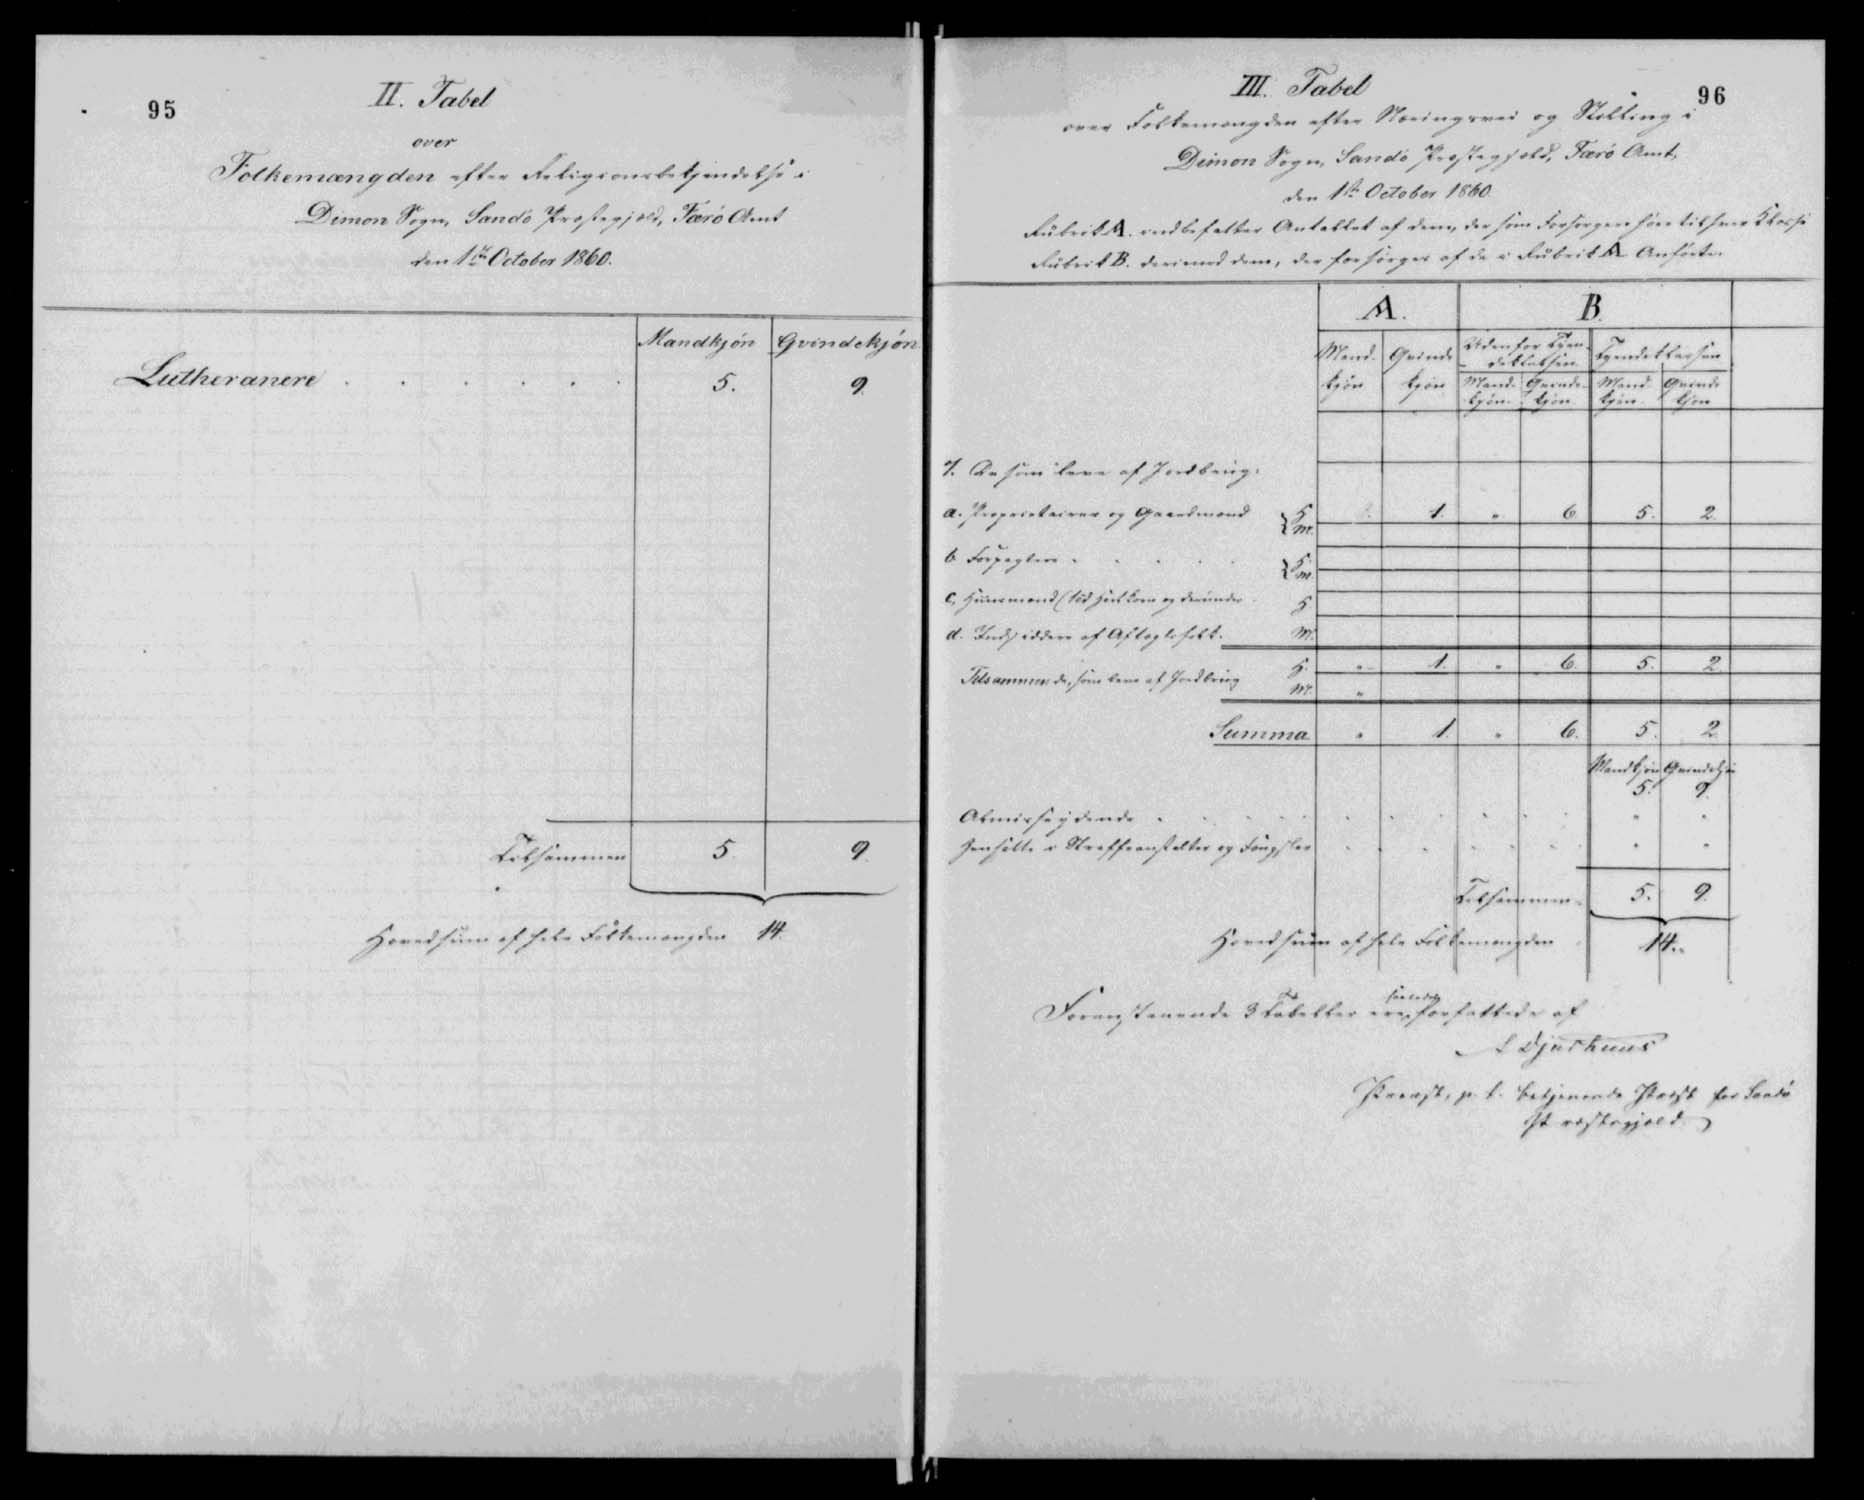 95
II. Tabel
over
Folkemængden efter Religionsbekjendelse i
Dimon Sogn, Sandö Præstegjæld, Færö Amt
den 1ste October 1860.
Mandkjön Qvindekjön
Lutheranere . . . . . . 5. 9.
Tilsammen 5. 9.
Hovedsum af hele Folkemængden 14.
96
III. Tabel
over Folkemængden efter Næringsvei og Stilling i
Dimon Sogn, Sandö Præstegjæld, Færö Amt,
den 1ste October 1860.
Rubrik A. indbefatter Antallet af dem, der som Forsørgere høre til hver Klasse
Rubrik B. derimod dem, der forsørges af de i Rubrik A Anførte.
A. B.
Mand- kjön Qvinde kjön Udenfor Tyen- deklassen. Tyendeklassen
Mand- kjön. Qvinde- kjön. Mand- kjön. Qvinde kjön
De som leve af Jordbrug:
a. Proprietairer og Gaardmænd H M. 1. " 6. 5. 2.
b. Forpagtere . . . . . H m.
c. Huusmænd (1 Td Hartkorn og derunder H
d. Indsiddere af Aftægtsfolk. M.
Tilsammen de, som leve af Jordbrug H. " 1. " 6. 5. 2.
M. "
Summa " 1. " 6. 5. 2.
Mandkjön Qvindekjön
5. 9.
Almisselydende . . . . . " "
Hensatte i Straffeanstalter og Fængsler . . . " "
Tilsammen. 5. 9.
Hovedsum af hele Folkemængden 14.
Foranstaaende 3 Tabeller ere saaledes forfattede af
Djurhuus
Provst, p. t. betjenende Præst for Sandö
Præstegjæld.